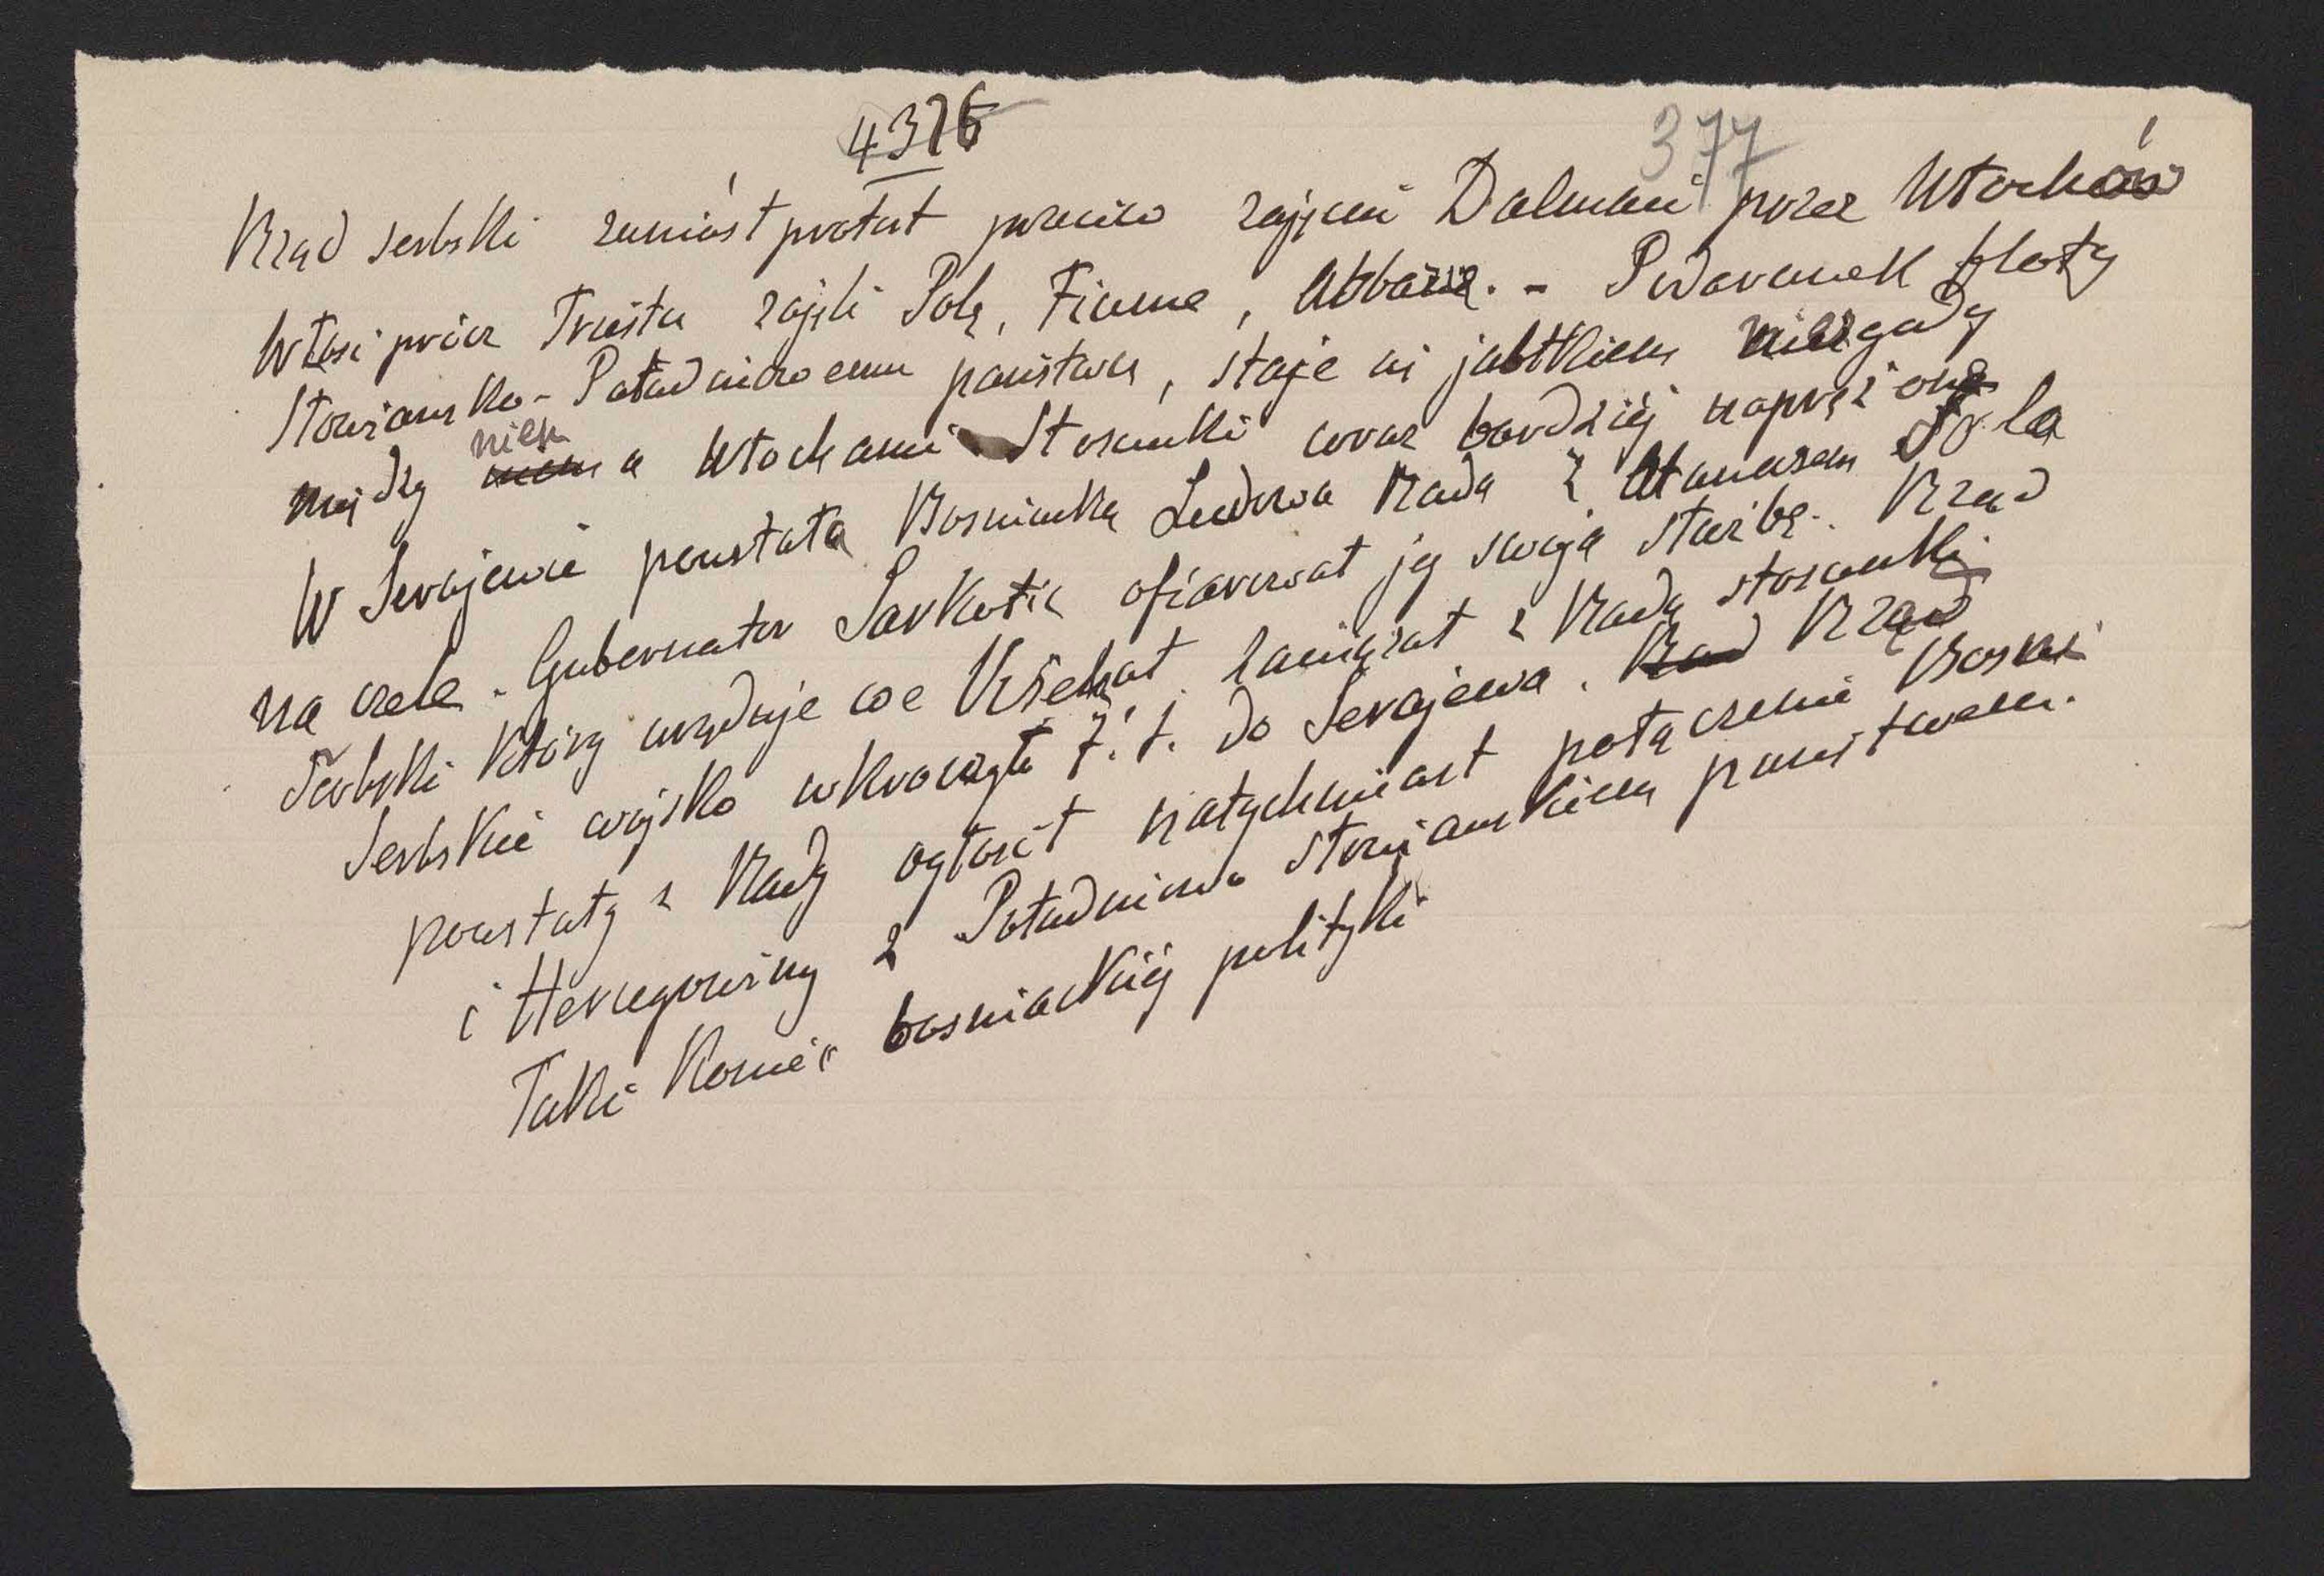 4376
377
Rząd serbski zaniósł protest przeciw zajęciu Dalmacii przez Włochów
Włosi prócz Triestu zajęli Polę, Fiume, Abbazię. - Podarunek floty
Słowiańsko-Południowemu państwu, staje się jabłkiem niezgody
między niem a Włochami Stosunki coraz bardziej naprężone
W Serajewie powstała Bosniacka Ludowa Rada z Atanazem Šola
na czele. Gubernator Sarkotic ofiarował jej swoją służbę. Rząd
Serbski który urzęduje we zawiązał z Radą stosunki
Serbskie wojsko wkroczyło 7. t. do Serajewa. Rząd
powstały z Rady ogłosił natychmiast połączenie Bosni
i Hercegowiny z Południowo słowiańskiem państwem.
Taki koniec bosniackiej polityki